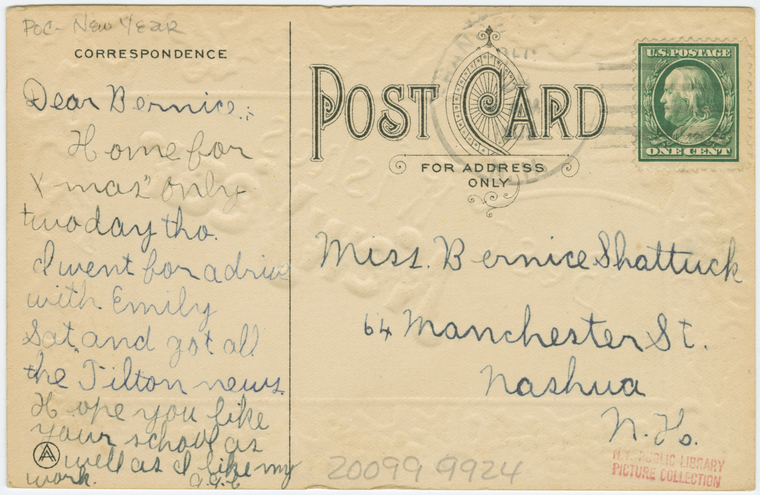 POC- New Year
CORRESPONDENCE
Dear Bernice,:
Home for
X'mas' only
two day tho.
I went for a drive
with Emily
Sat. and got all
the Tilton news.
Hope you like
your school as
well as I like my
work.
POST CARD
FOR ADDRESS
ONLY
U.S. POSTAGE
ONE CENT
Miss. Bernice Shattuck
64 Manchester St.
Nashua
N. H.
20099 9924
N.Y. PUBLIC LIBRARY
PICTURE COLLECTION